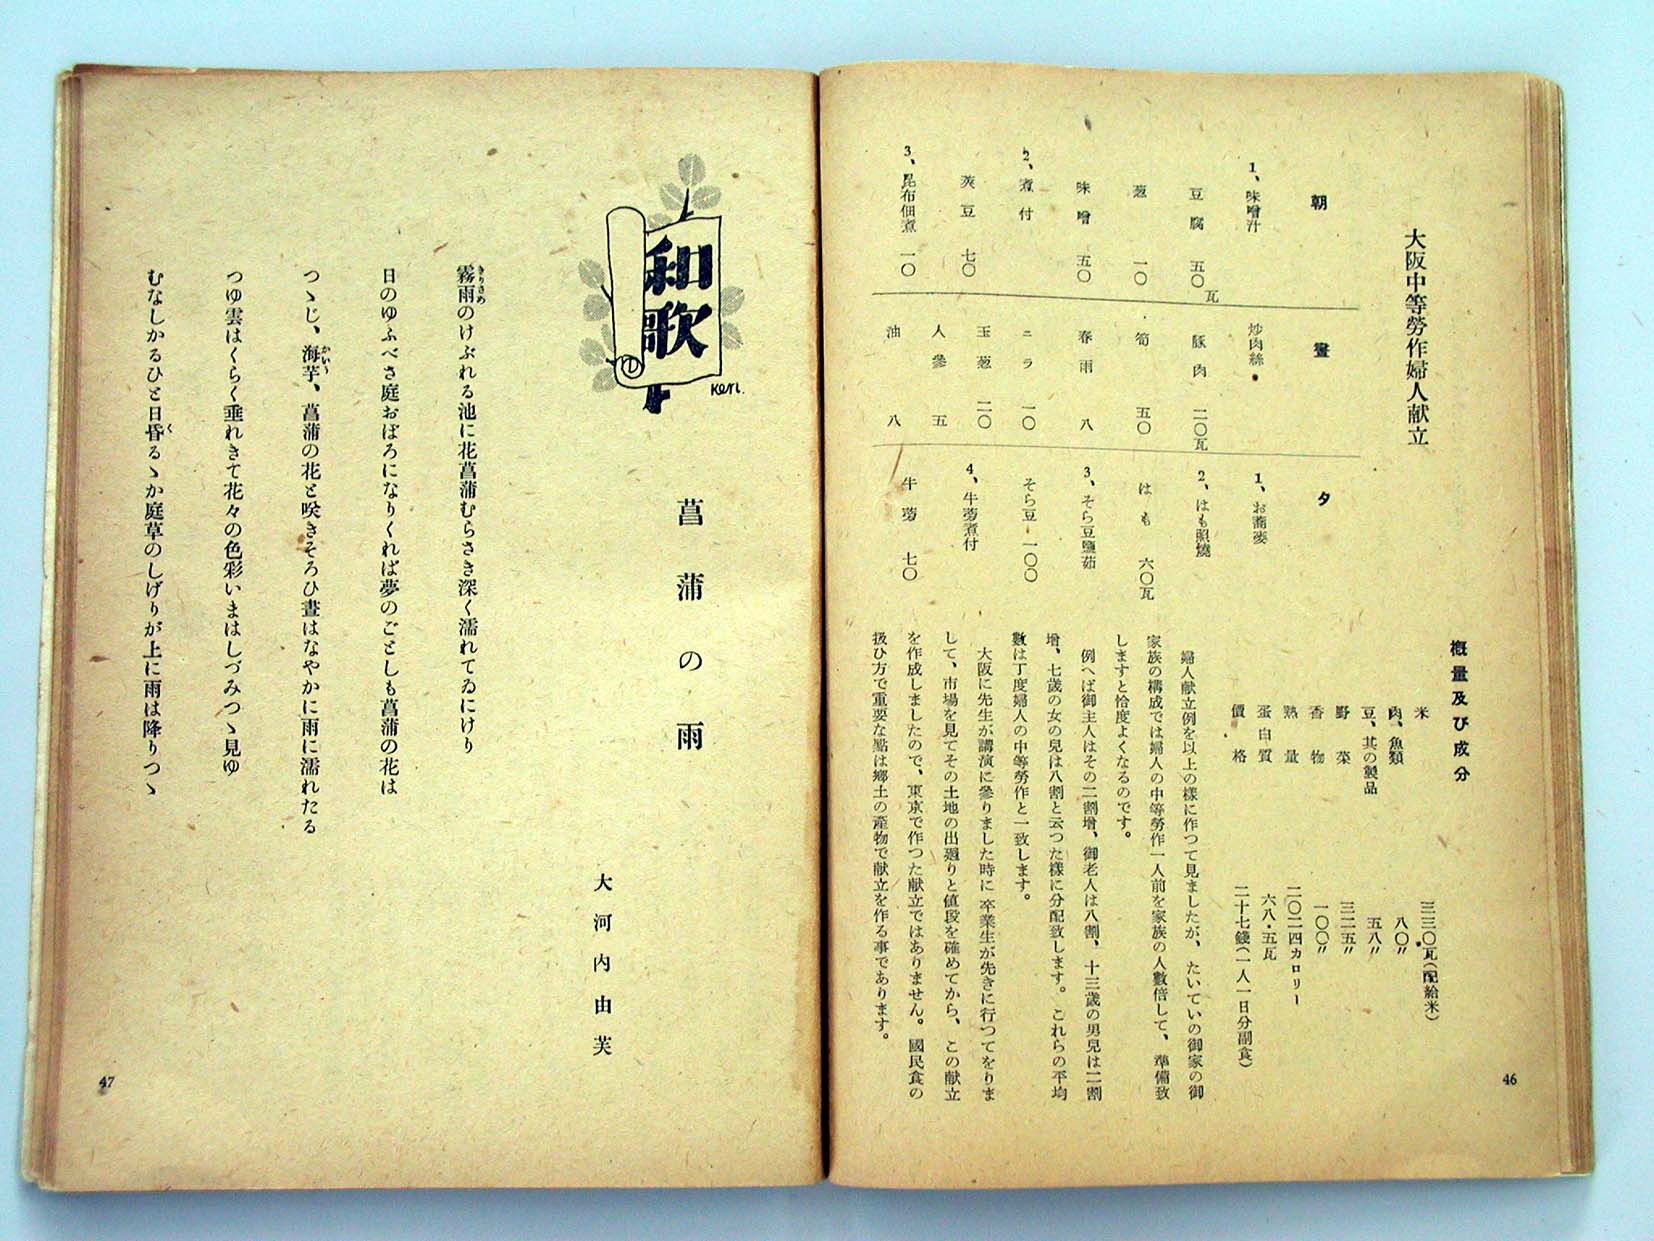 大阪中等勞作婦人献立
朝
1、味噌汁
豆腐 五〇瓦
葱 一〇
味噌 五〇
2、煮付
莢豆 七〇
3、昆布佃煮 一〇
晝
炒肉絲
豚肉 二〇瓦
筍 五〇
春雨 八
ニラ 一〇
玉葱 二〇
人參 五
油 八
夕
1、お蕎麥
2、はも照燒
はも 六〇瓦
3、そら豆鹽茹
そら豆 一〇〇
4、牛蒡煮付
牛蒡 七〇
概量及び成分
米 三三〇瓦(配給米)
肉、魚類 八〇〃
豆、其の製品 五八〃
野菜 三二五〃
香物 一〇〇〃
熱量 二〇二四カロリー
蛋白質 六八・五瓦
價格 二十七錢(一人一日分副食)
婦人献立例を以上の樣に作つて見ましたが、たいていの御家の御
家族の構成では婦人の中等勞作一人前を家族の人數倍して、準備致
しますと恰度よくなるのです。
例へば御主人はその二割增、御老人は八割、十三歲の男兒は二割
增、七歲の女の兒は八割と云つた樣に分配致します。これらの平均
數は丁度婦人の中等勞作と一致します。
大阪に先生が講演に參りました時に 卒業生が先きに行つてをりま
して、市場を見てその土地の出廻りと値段を確めてから、この献立
を作成しましたので、東京で作つた献立ではありません。國民食の
扱ひ方で重要な點は鄉土の產物で献立を作る事であります。
46
和歌
Ken.
菖蒲の雨
大河内由芙
霧雨のけぶれる池に花菖蒲むらさき深く濡れてゐにけり
きりさめ
日のゆふべさ庭おぼろになりくれば夢のごとしも菖蒲の花は
つゝじ、海芋、菖蒲の花と咲きそろひ晝はなやかに雨に濡れたる
かいう
つゆ雲はくらく垂れきて花々の色彩いましづみつゝ見ゆ
むなしかるひと日昏るゝか庭草のしげりが上に雨は降りつゝ
く
47